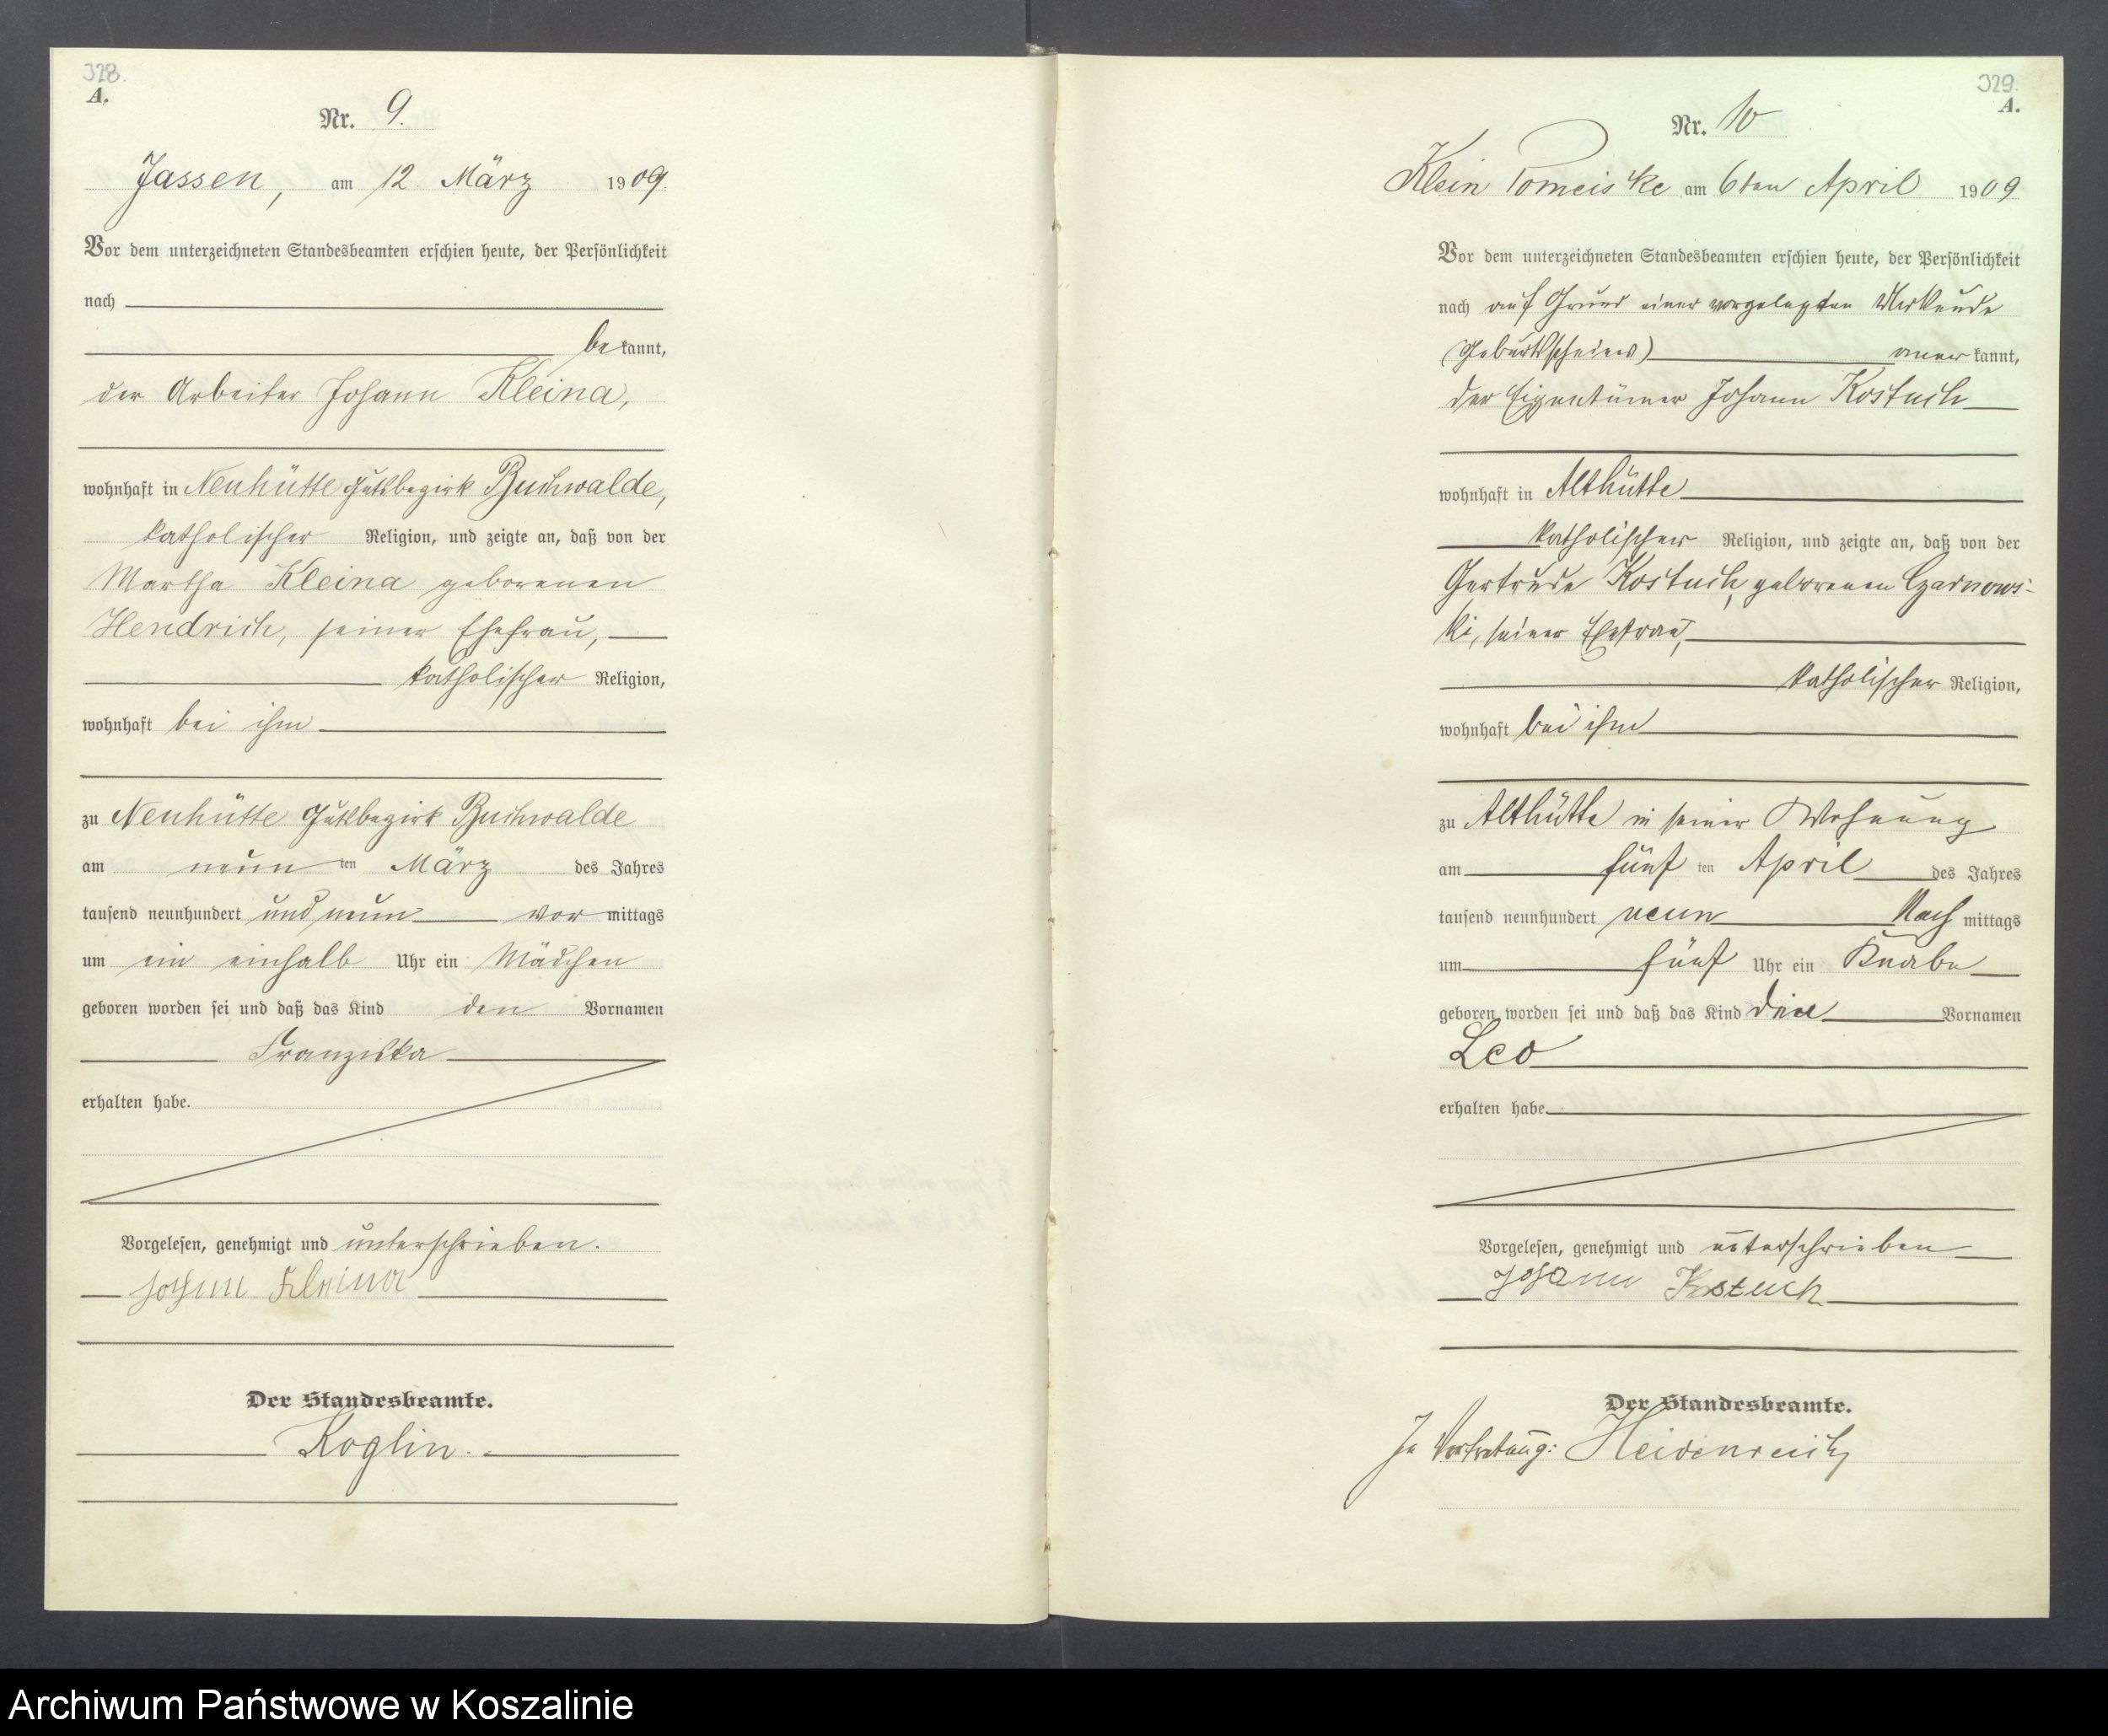 328.
A.
Nr. 9.
Jassen, am 12. März 1909.
Vor dem unterzeichneten Standesbeamten erschien heute, der Persönlichkeit
nach
bekannt,
der Arbeiter Johann Kleina,
wohnhaft in Neuhütte Gutsbezirk Buchwalde,
katholischer Religion, und zeigte an, daß von der
Martha Kleina geborenen
Hendrich, seiner Ehefrau,
katholischer Religion,
wohnhaft bei ihm
zu Neuhütte Gutsbezirk Buchwalde
am neunten März des Jahres
tausend neunhundert und neun vormittags
um ein einhalb Uhr ein Mädchen
geboren worden sei und daß das Kind den Vornamen
Franziska
erhalten habe.
Vorgelesen, genehmigt und unterschrieben.
Johann Kleina
Der Standesbeamte.
Koglin.
329.
A.
Nr. 10
Klein Pomeiske am 6ten April 1909
Vor dem unterzeichneten Standesbeamten erschien heute, der Persönlichkeit
nach auf Grund einer vorgelegten Urkunde
(Geburtsscheins) anerkannt,
der Eigentümer Johann Kostuch
wohnhaft in Althütte
katholischer Religion, und zeigte an, daß von der
Gertrude Kostuch, geborenen Czarnows-
ki, seiner Ehefrau,
katholischer Religion,
wohnhaft bei ihm
zu Althütte in seiner Wohnung
am fünften April des Jahres
tausend neunhundert neun Nachmittags
um fünf Uhr ein Knabe
geboren worden sei und daß das Kind den Vornamen
Leo
erhalten habe.
Vorgelesen, genehmigt und unterschrieben
Johann Kostuch
Der Standesbeamte.
In Vertretung: Heidenreich
Archiwum Państwowe w Koszalinie